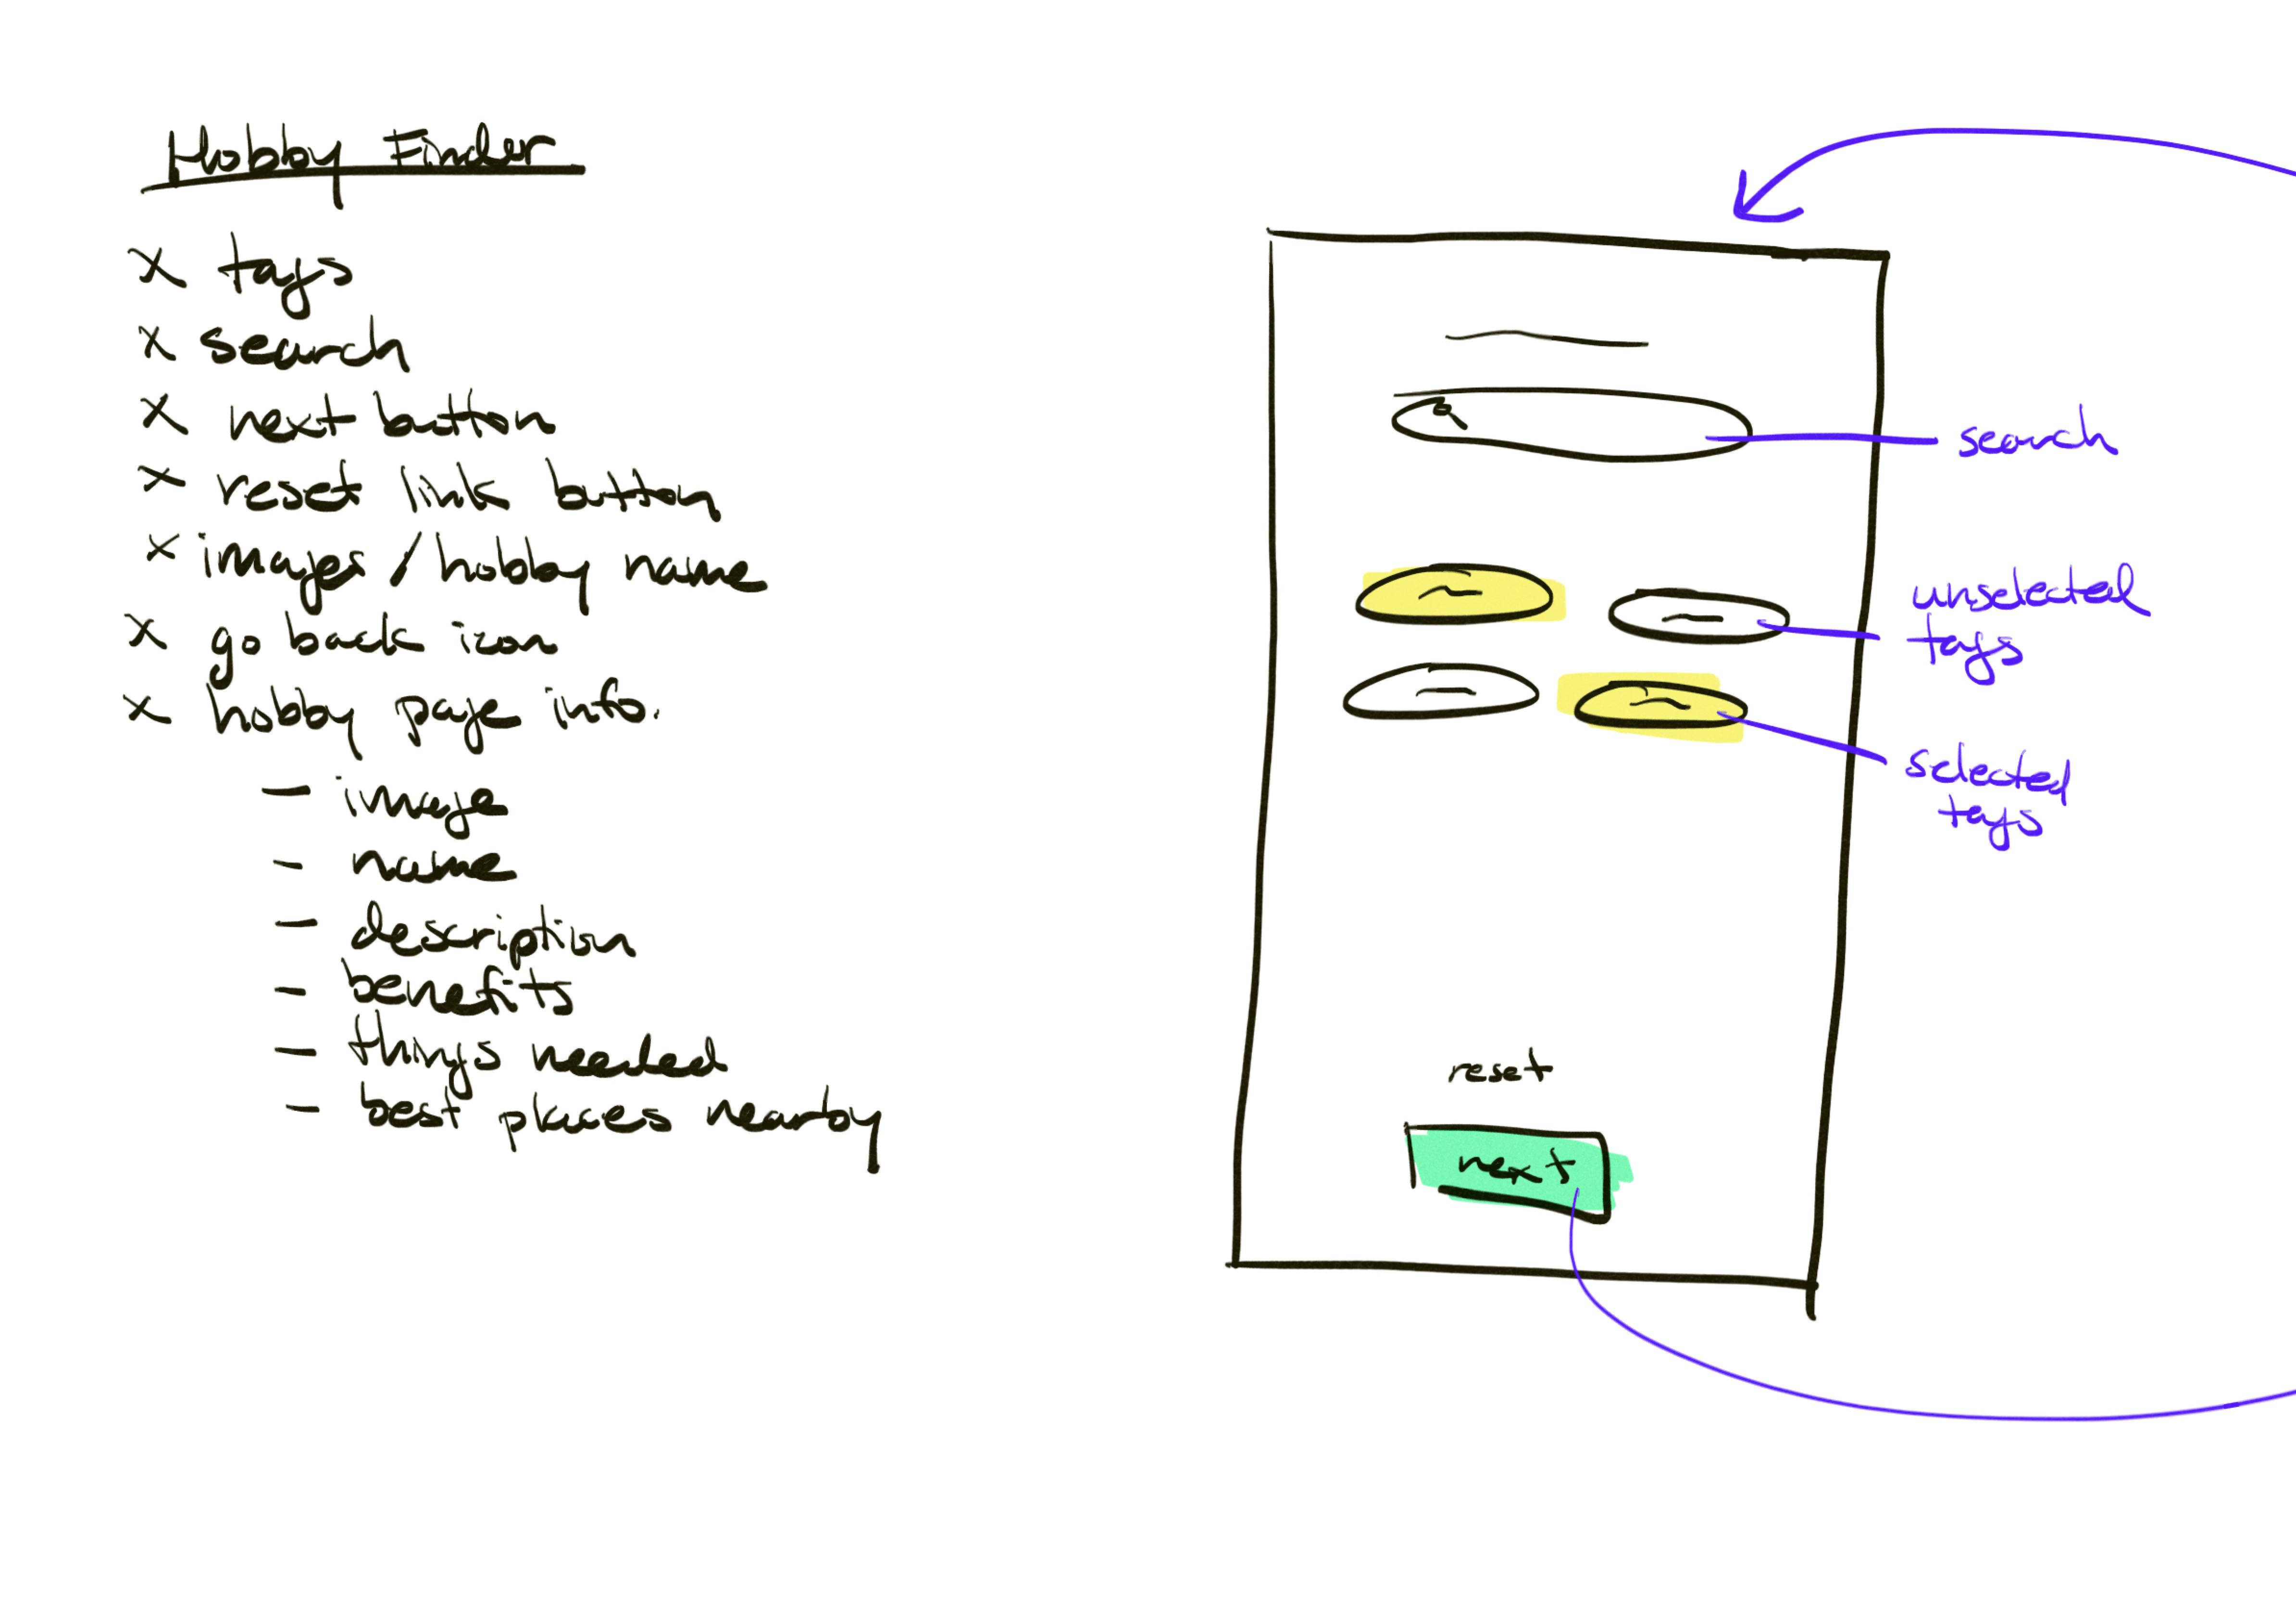 Hobby Finder
x tags
x search
x next button
x reset link button
x images / hobby name
x go back icon
x hobby page info.
- image
- name
- description
- benefits
- things needed
- best places nearby
search
unselected
tags
selected
tags
reset
next